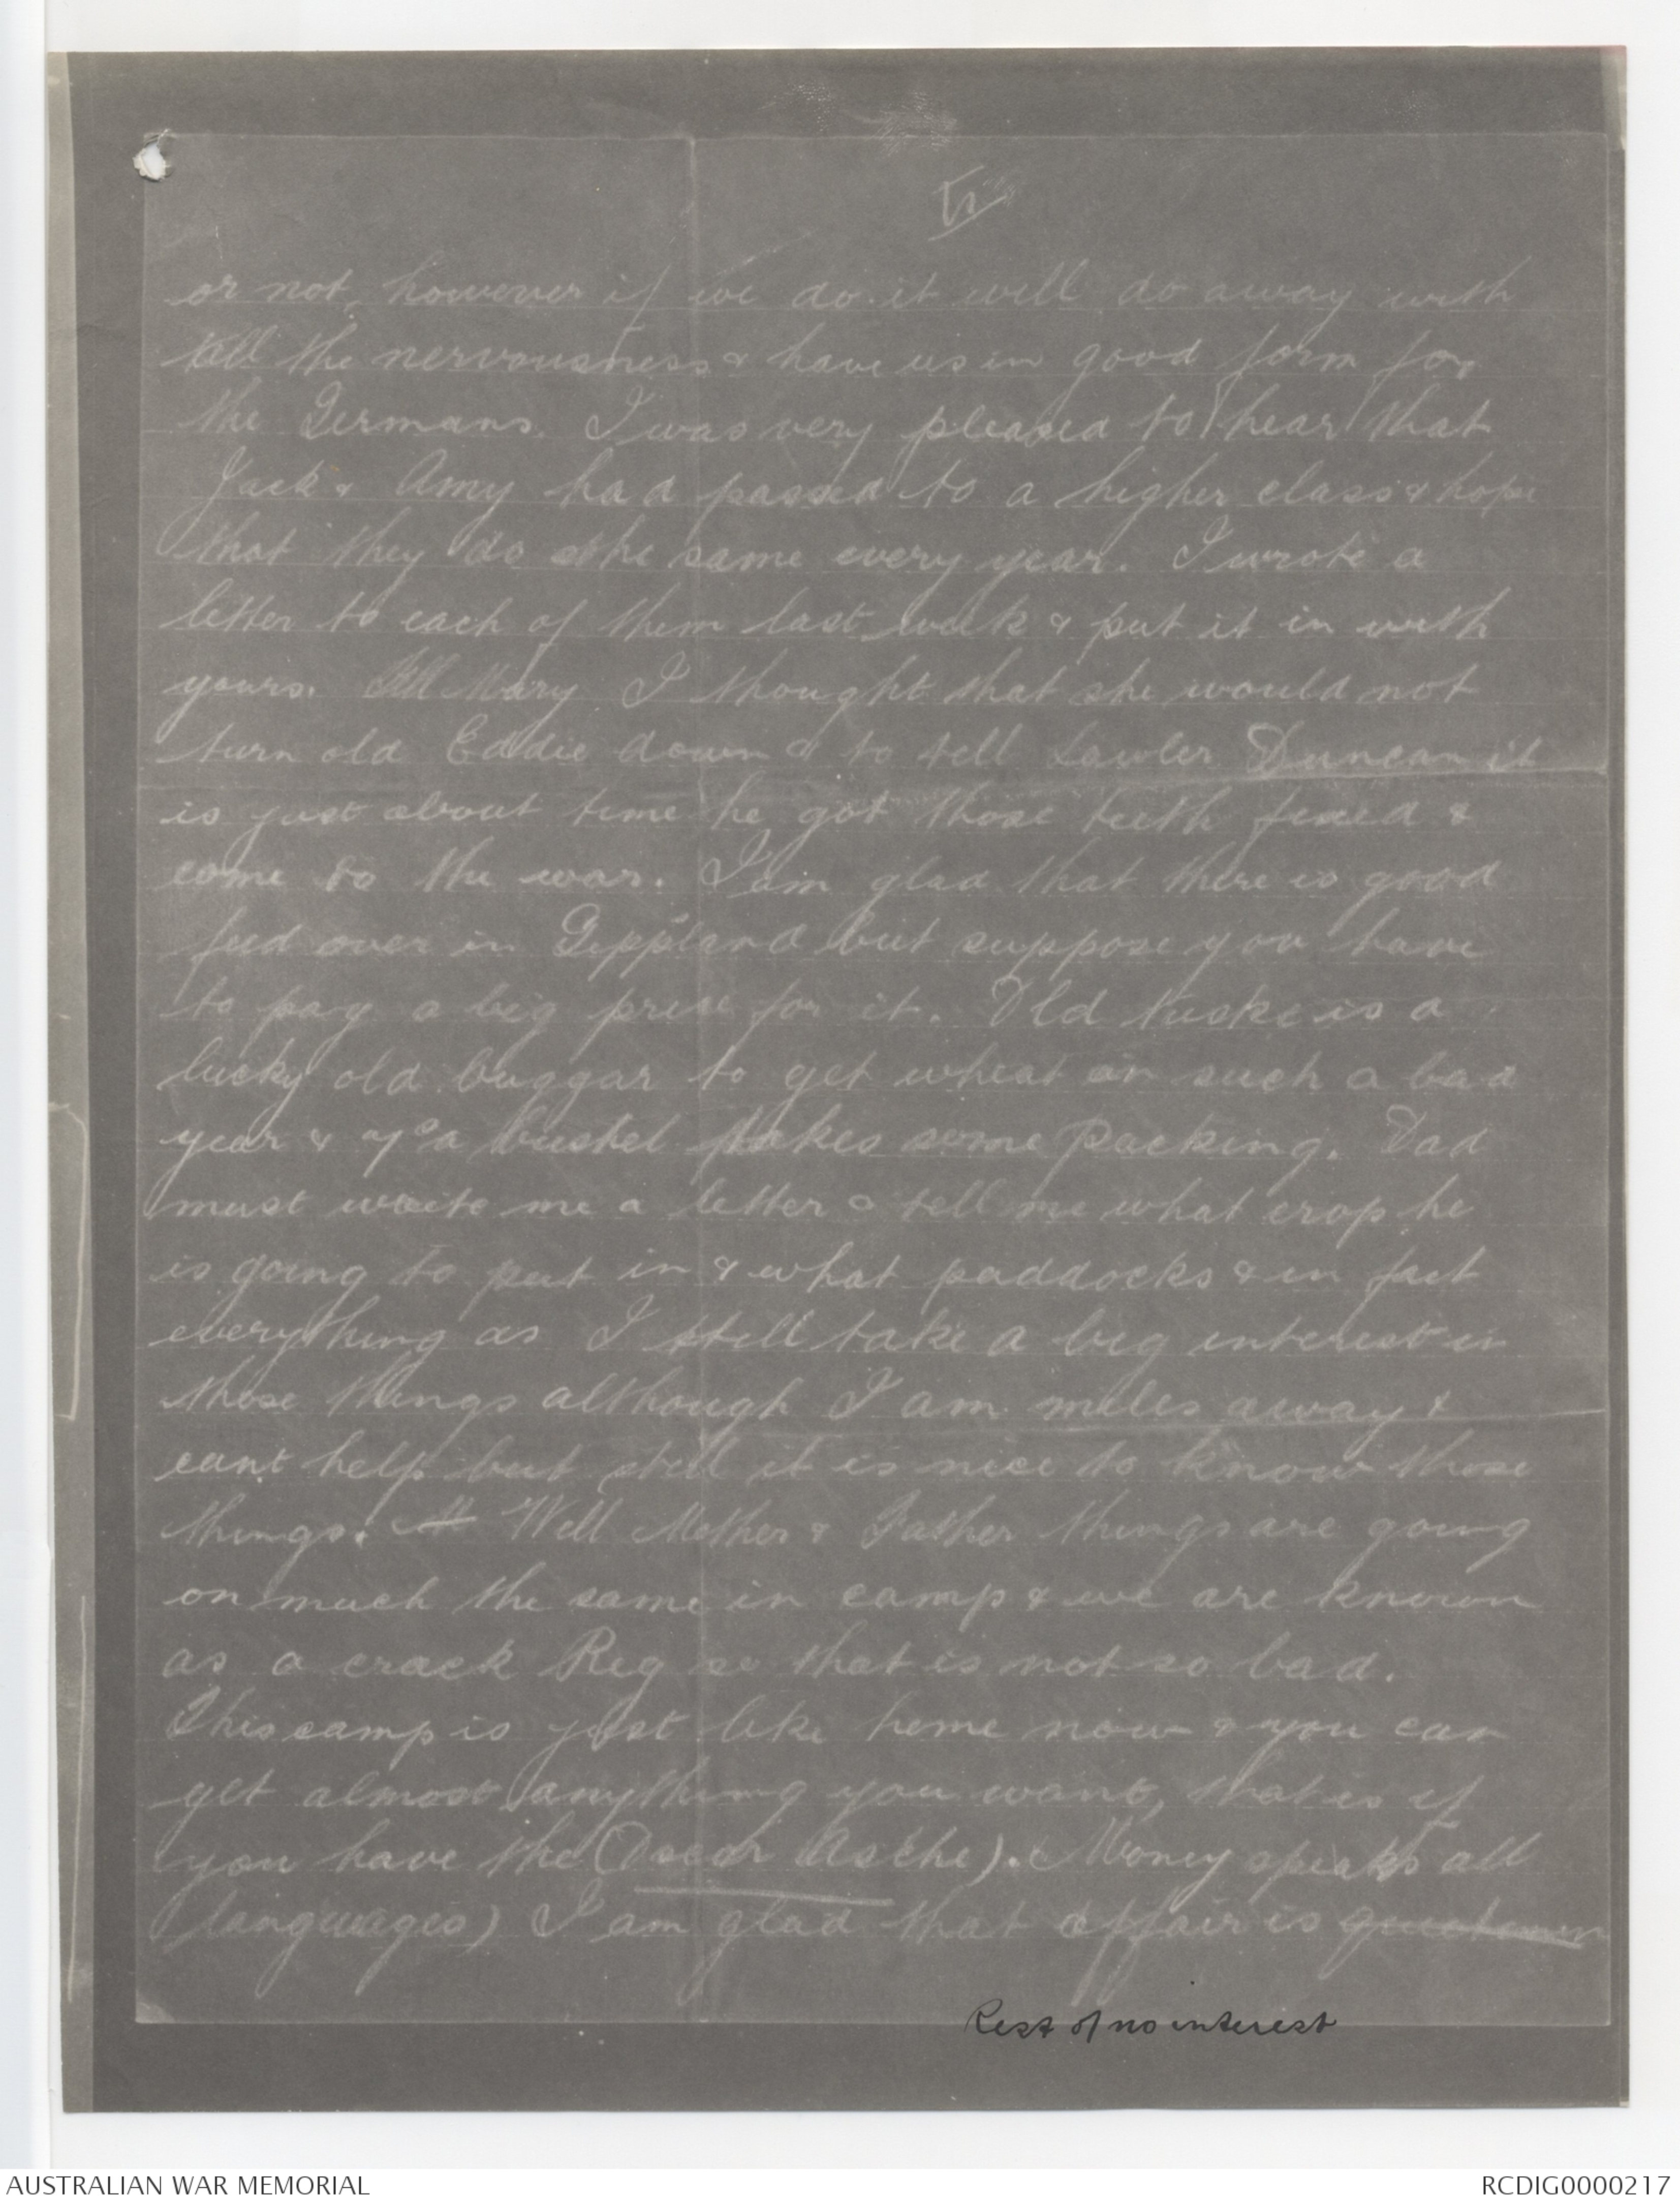 or not, however if we do it will do away with
all the nervousness & have us in good form for
the Germans. I was very pleased to hear that
Jack & Amy had passed to a higher class & hope
that they do the same every year. I wrote a
letter to each of them last week & put it in with
yours. Tell Mary I thought that she would not
turn old Eddie down & to tell Lawler Duncan it
is just about time he got those teeth fixed &
come to the war. I am glad that there is good
feed over in Gippsland but suppose you have
to pay a big price for it. Old is a
lucky old buggar to get wheat in such a bad
year & 7s a bushel takes some packing. Dad
must write me a letter & tell me what crop he
is going to put in & what paddocks & in fact
everything as I still take a big interest in
those things although I am miles away &
cant help but still it is nice to know those
things. Well Mother & Father things are going
on much the same in camp & we are known
as a crack Reg so that is not so bad.
This camp is just like home now & you can
get almost anything you want, that is if
you have the (Oscar Asche). Money speaks all
languages) I am glad that affair is
Rest of no interest
AUSTRALIAN WAR MEMORIAL
RCDIG0000217